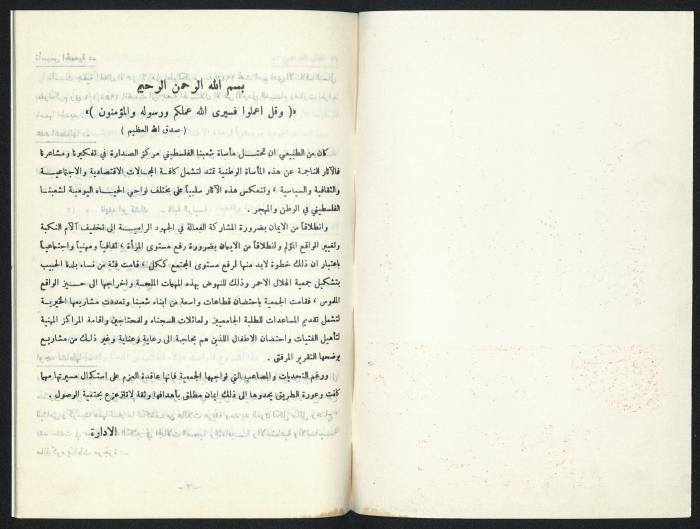 بسم الله الرحمن الرحيم
«( وقل اعملوا فسيرى الله عملكم ورسوله والمؤمنون )»
( صدق الله العظيم )
كان من الطبيعي ان تحتـــل مأساة شعبنا الفلسطيني مركز الصدارة في تفكيرنا ومشاعرنا
فالآثار الناجمة عن هذه المأساة الوطنية تمتد لتشمل كافـة المجـالات الاقتصادية والاجتماعيــة
والثقافية والسياسية ، وتنعكس هذه الآثار سلبياً على مختلف نواحي الحيـــاة اليومية لشعبنـا
الفلسطيني في الوطن والمهجر .
وانطلاقاً من الايمان بضرورة المشاركة الفعالة في الجهود الراميـــة الى تخفيف آلام النكبة
وتغيير الواقع المؤلم وانطلاقاً من الايمان بضرورة رفع مستوى المرأة ، ثقافياً ومهنياً واجتماعيـاً
باعتبار ان ذلك خطوة لابد منها لرفع مستوى المجتمع ككل ، قامت فئة من نساء بلدنا الحبيب
بتشكيل جمعية الهلال الاحمر وذلك للنهوض بهذه المهمات الملحمة واخراجها الى حـــيز الواقع
الملموس ، فقامت الجمعية باحتضان قطاعات واسعة من ابناء شعبنا وتعددت مشاريعها الخيرية
لتشمل تقديم المساعدات للطلبة الجامعيين ولعائلات السجناء والمحتاجين واقامة المراكز المهنية
لتأهيل الفتيات واحتضان الاطفال اللذين هم بحاجة الى رعاية وعناية وغير ذلـك من مشاريـع
يوضحها التقرير المرفق .
ورغم التحديات والمصاعب التي تواجهها الجمعية فانها عاقدة العزم على استكمال مسيرتها مهما
كانت وعورة الطريق يحدوها الى ذلك ايمان مطلق بأهدافها وثقة لاتتزعزع بحتمية الوصول .
الادارة